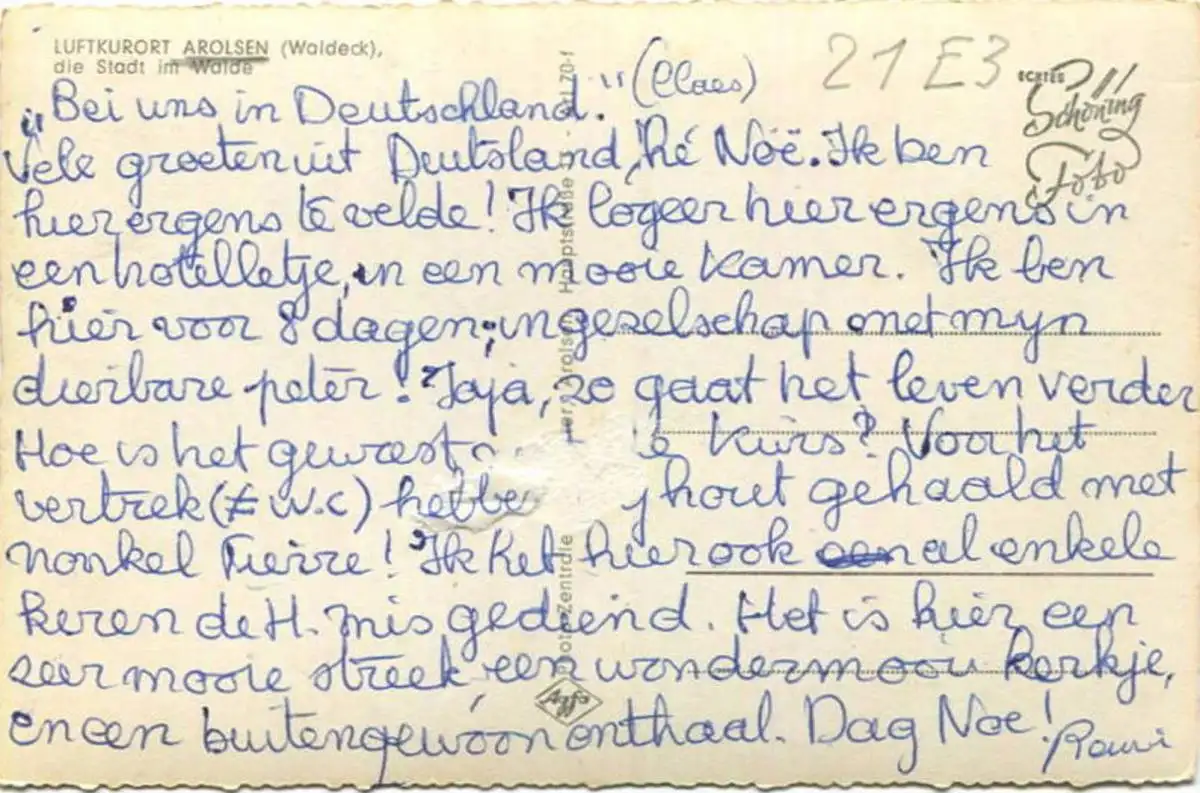 LUFTKURORT AROLSEN (Waldeck),
die Stadt im Walde
21 E3
ECHTES
Schöning
Foto
„Bei uns in Deutschland." (Claes)
Vele groeten uit Deutsland, hé Noë. Ik ben
hier ergens te velde! Ik logeer hier ergens in
een hotelletje, in een mooie kamer. Ik ben
hier voor 8 dagen, in gezelschap met myn
dierbare peter! Jaja, zo gaat het leven verder
Hoe is het geweest Kürs? Voor het
vertrek (≠ W.C) hebbe hout gehaald met
nonkel Pierre! Ik heb hier ook al enkele
keren de H. Mis gediend. Het is hier een
zeer mooie streek, een wondermooi kerkje,
en een buitengewoon onthaal. Dag Noe!
Agfa